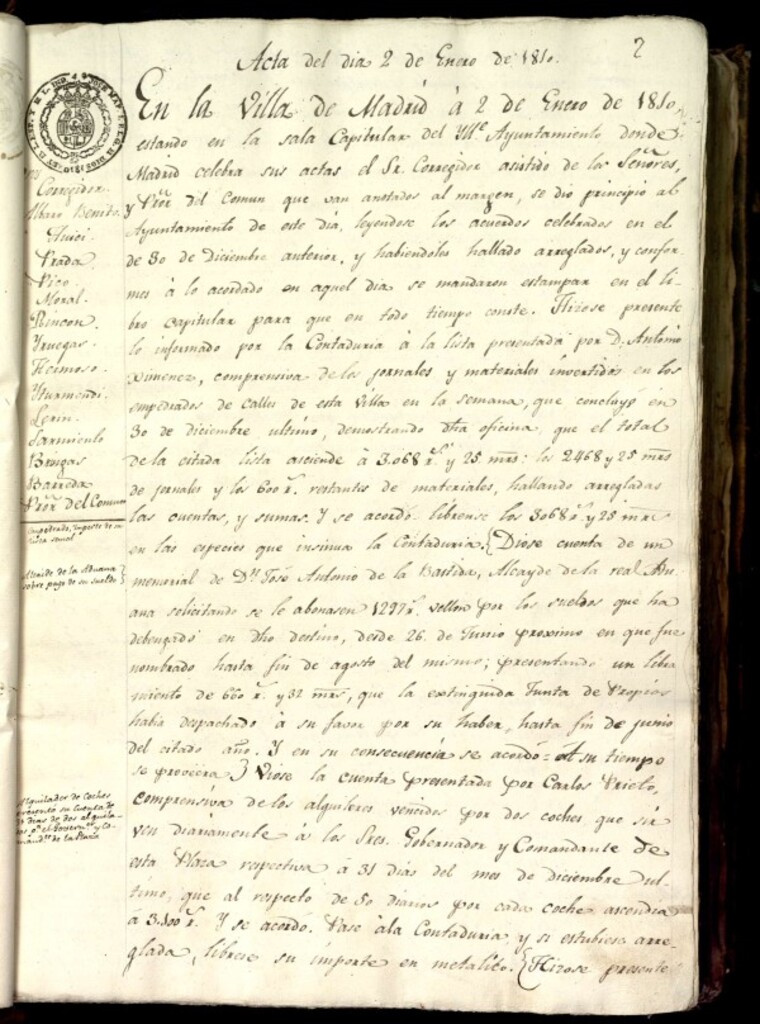 2
Acta del dia 2 de Enero de 1810.
En la Villa de Madrid à 2 de Enero de 1810,
estando en la sala Capitular del Yll.e Ayuntamiento donde
Madrid celebra sus actas el Sr. Corregidor asistido de los Señores,
y Pror del Comun que van anotados al margen, se dio principio al
Ayuntamiento de este dia, leyendose los acuerdos celebrados en el
de 30 de Diciembre anterior, y habiendolos hallado arreglados, y confor-
mes à lo acordado en aquel dia se mandaron estampar en el li-
bro capitular para que en todo tiempo conste. Hizose presente
lo informado por la Contaduria à la lista presentada por D. Antonio
Ximenez, comprensiva de los jornales y materiales invertidos en los
empedrados de calles de esta Villa en la semana, que concluyó en
30 de diciembre ultimo, demostrando dha oficina, que el total
de la citada lista asciende à 3.068 r.s y 25 mrs: los 2468 y 25 mrs
de jornales y los 600 r. restantes de materiales, hallando arregladas
las cuentas, y sumas. Y se acordó: librense los 3068 r. y 25 mrs
en las especies que insinua la Contaduria. { Diose cuenta de un
memorial de Dn José Antonio de la Bastida, Alcayde de la real Adu-
ana solicitando se le abonasen 1297 r. vellon por los sueldos que ha
debengado en dho destino, desde 26 de Junio proximo en que fue
nombrado hasta fin de agosto del mismo; presentando un libra-
miento de 660 r. y 32 mrs, que la extinguida Junta de Propios
habia despachado à su favor por su haber, hasta fin de junio
del citado año. Y en su consecuencia se acordó: Al su tiempo
se proveera } Viose la cuenta presentada por Carlos Prieto,
comprensiva de los alquileres vencidos por dos coches que sir-
ven diariamente à los Sres. Gobernador y Comandante de
esta Plaza respectiva à 31 dias del mes de diciembre ul-
timo, que al respecto de 50 diarios por cada coche ascendia
à 3.100 r. Y se acordó. Pase àla Contaduria, y si estubiese arre-
glada, librese su importe en metalico. { Hizose presente
Corregidor.
Alvaro Benito.
Huici.
Prada.
Pico.
Moral.
Rincon.
Yruegas.
Hermoso.
Yturmendi.
Lerin.
Sarmiento
Bringas
Barreda
Pror del Comun
Empedrado, Ymporte de
semal
Alcaide de la Aduana
sobre pago de su sueldo }
Alquilador de Coches
presentó su Cuenta de
dias de dos alquila-
el Govern.or y Co-
mand.te de la Plaza